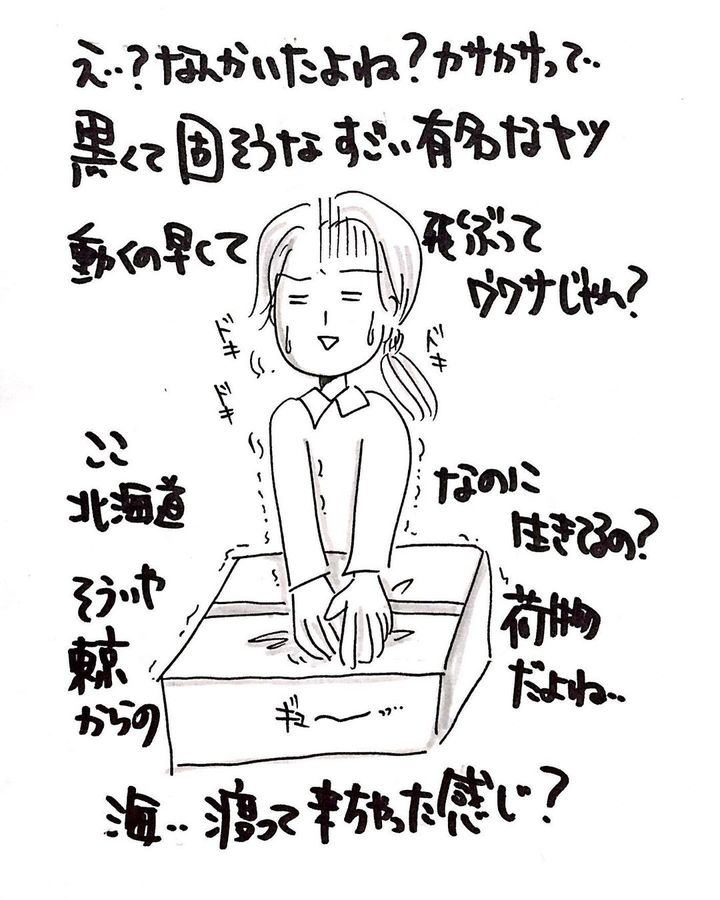 え‥?なんかいたよね?カサカサって‥
黒くて固そうなすごい有名なヤツ
動くの早くて
飛ぶって
ウワサじゃん?
ドキ
ドキ
ドキ
ここ
北海道
なのに
生きてるの?
そういや
東京
からの
荷物
だよね‥
ギュ〜‥‥
海‥渡って来ちゃった感じ?